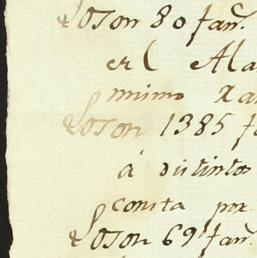 Son 80 fan.
en el Ala
mimo Xa
Son 1385 f
a distintos
consta por
Son 69 fan.